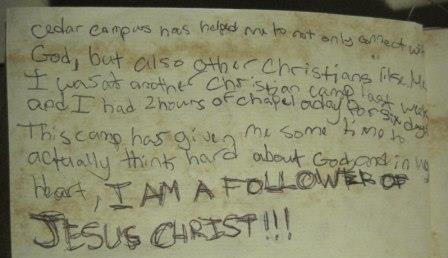 cedar campus has helped me to not only connect with
God, but also other Christians like me
I was at another Christian camp last week
and I had 2 hours of chapel a day for six days
This camp has given me some time to
actually think hard about God, and in my
heart, I AM A FOLLOWER OF
JESUS CHRIST!!!